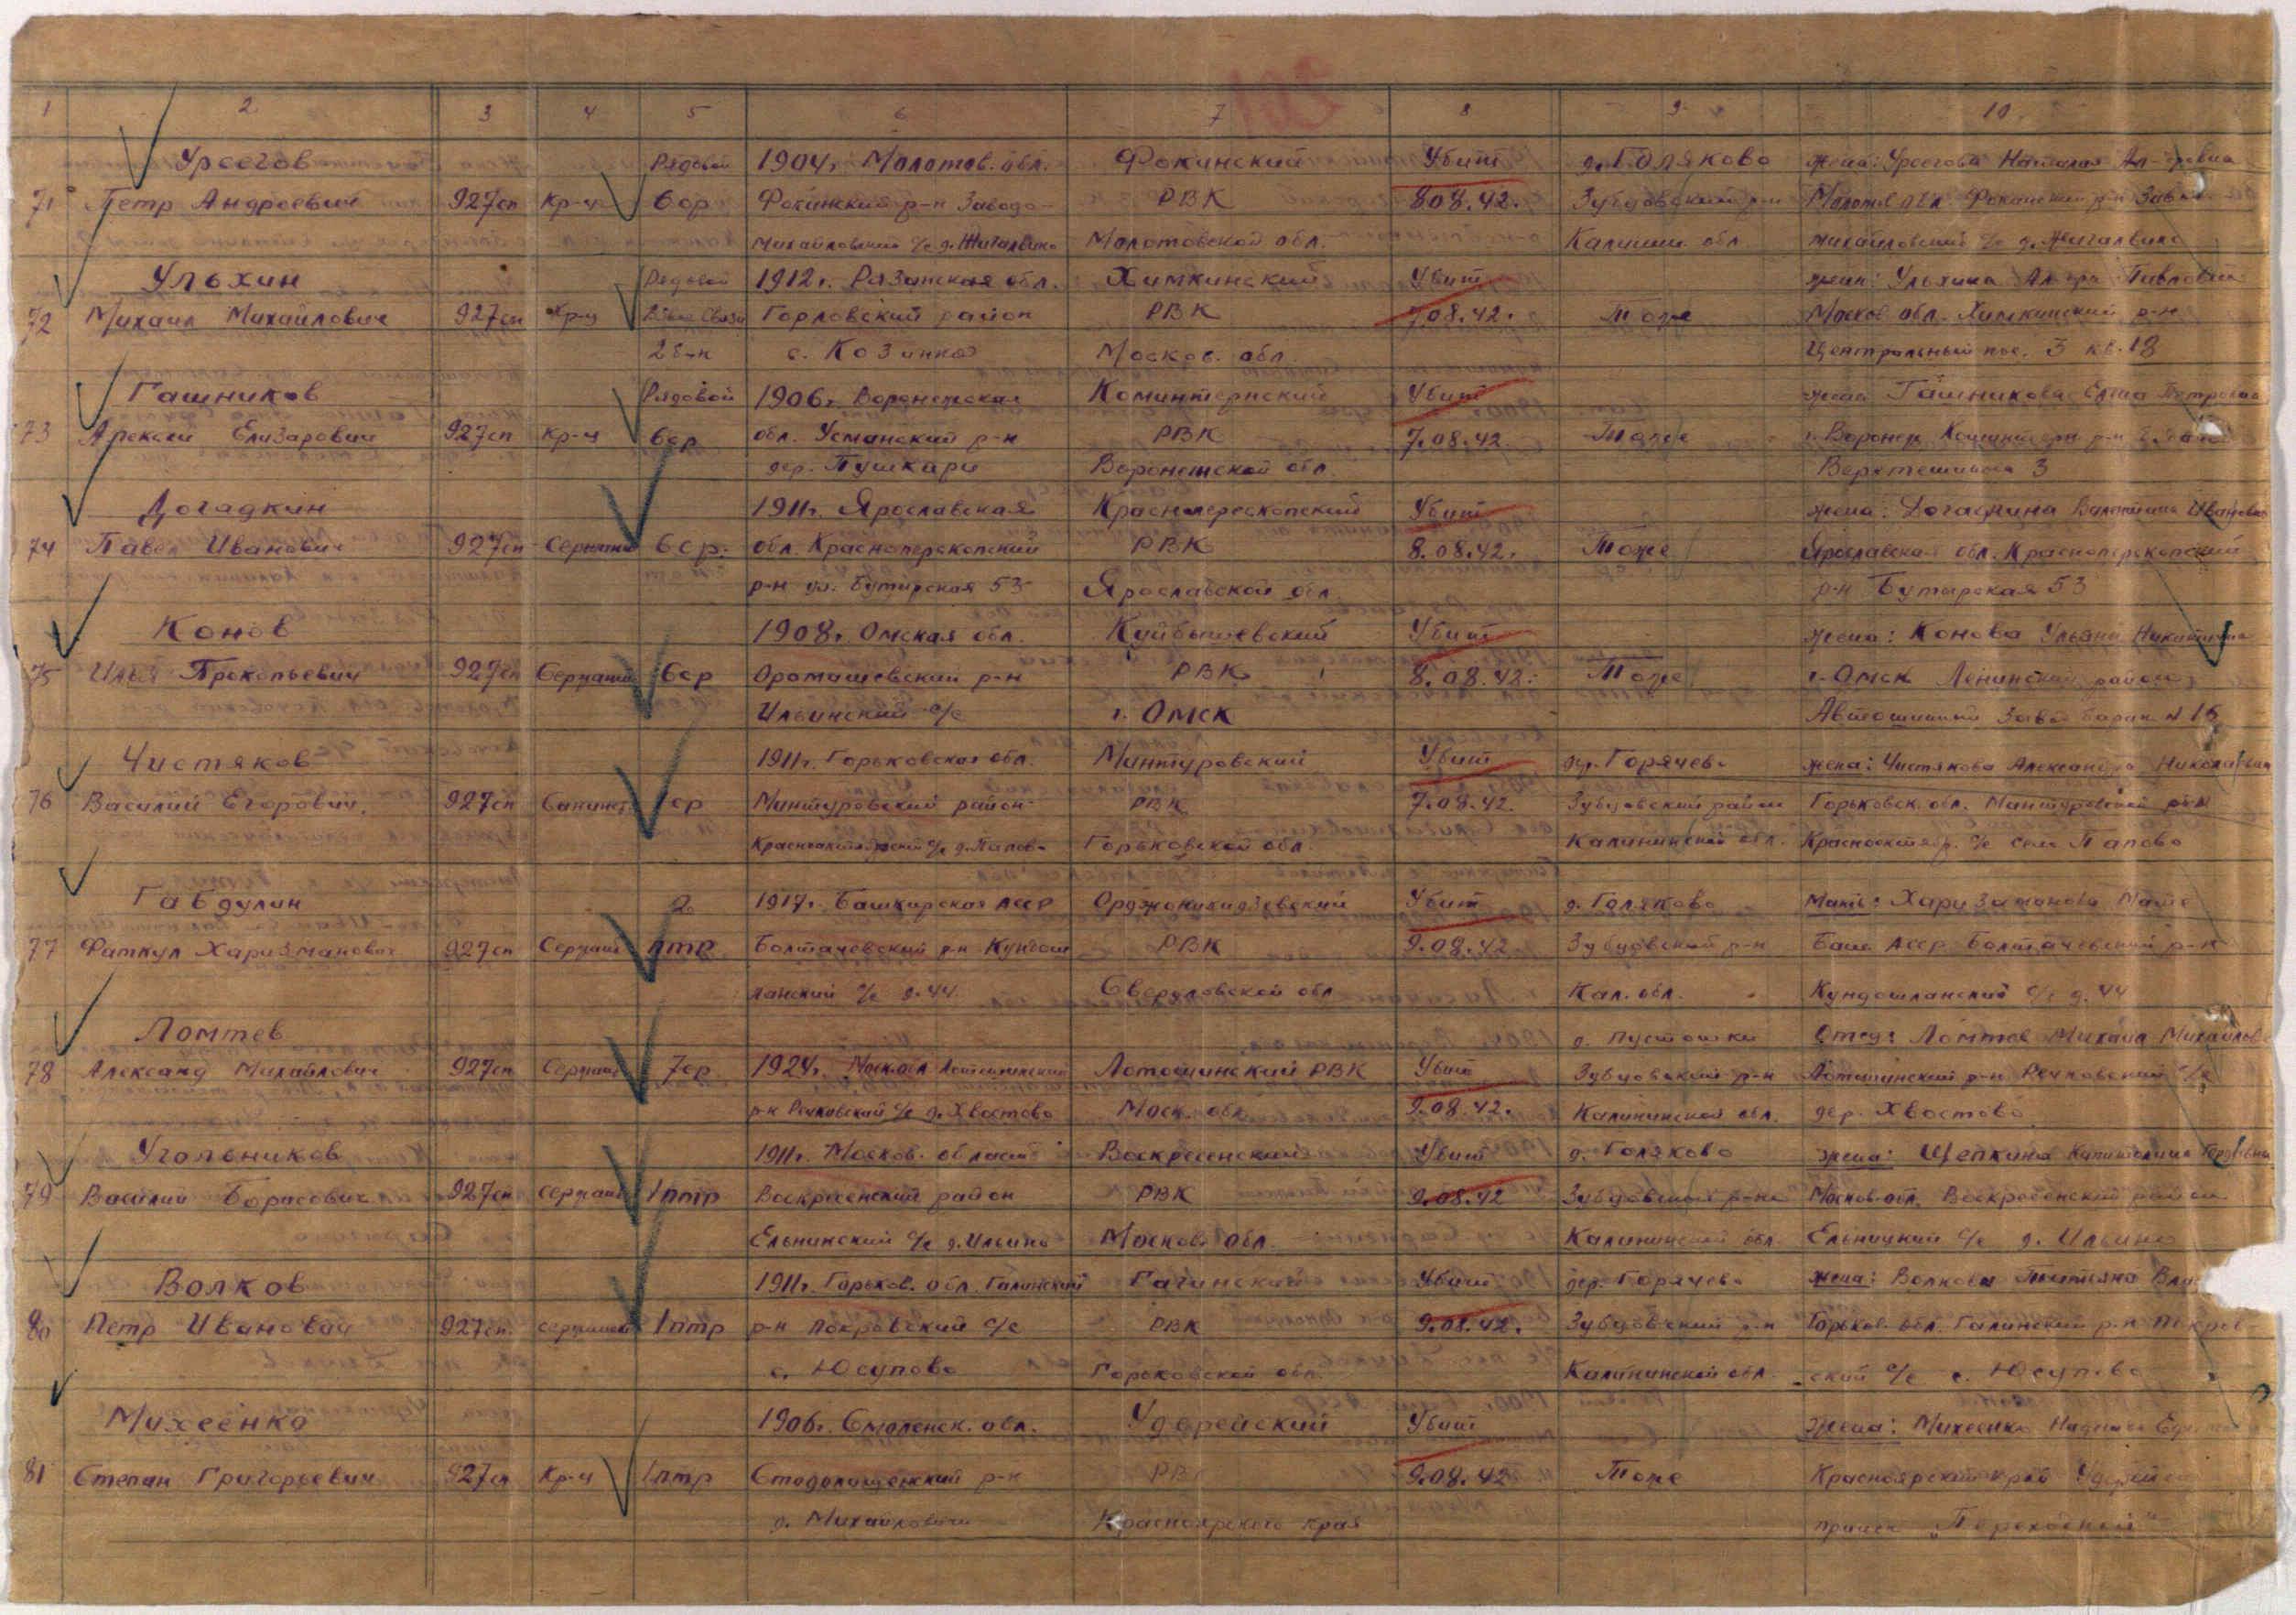 1 2 3 4 5 6 7 8 9 10
Урсегов Рядовой 1904г. Молотов. обл. Фокинский Убит д. Голяково жена: Урсегова Наталия
71 Петр Андреевич 927сп Кр-ц 6ср Фокинский р-н Заводо- РВК 8.08.42. Зубцовский р-н Молотов обл. Фокинский р-н Завод
Михайловский с/с д. Жигалвино Молотовской обл. Калинин. обл. михайловский с/с д. Жигалвино
Ульхин Рядовой 1912г. Рязанская обл. Химкинский Убит жена: Ульхина Павловна
72 Михаил Михайлович 927сп Кр-ц Взвод Связи Горловский район РВК 7.08.42. Тоже Москов. обл. Химкинский р-н
2 б-н с. Козинка Москов. обл. Центральный пос. 3 кв. 18
Гашников Рядовой 1906г. Воронежская Коминтернский Убит жена Гашникова Елена Петровна
73 Алексей Елизарович 927сп Кр-ц 6ср обл. Усманский р-н РВК 7.08.42. Тоже г. Воронеж Коминтерн. р-н
дер. Пушкари Воронежской обл. 3
Догадкин 1911г. Ярославская Красноперекопский Убит жена: Догадкина Валентина Ивановна
74 Павел Иванович 927сп Сержант 6ср. обл. Красноперекопский РВК 8.08.42. Тоже Ярославская обл. Красноперекопский
р-н ул. Бутырская 53 Ярославской обл. р-н Бутырская 53
Конов 1908г. Омская обл. Куйбышевский Убит жена: Конова Ульяна Никитична
75 Илья Прокопьевич 927сп Сержант 6ср Аромашевский р-н РВК 8.08.42. Тоже г. Омск Ленинский район
Ильинский с/с г. Омск Автошинный завод барак N 16
Чистяков 1911г. Горьковская обл. Мантуровский Убит дер. Горячево жена: Чистякова Александра Николаевна
76 Василий Егорович. 927сп Сапинст. 1ср Мантуровский район РВК 7.08.42. Зубцовский район Горьковск. обл. Мантуровский р-н
Краснооктябрьский с/с д. Папово Горьковской обл. Калининской обл. Краснооктябр. с/с село Папово
Габдулин 2 1917г. Башкирская АССР Орджоникидзевский Убит д. Голяково Мать: Харизаманова
77 Фаткул Харизманович 927сп Сержант птр Болтачевский р-н Кундаш РВК 9.08.42. Зубцовский р-н Баш. АССР Болтачевский р-н
ланский с/с д. 44 Свердловской обл. Кал. обл. Кундашланский с/с д. 44
Ломтев д. Пустошки Отец: Ломтев Михаил Михайлов
78 Александ Михайлович 927сп Сержант 7ср 1924г. Моск. обл Лотошинский Лотошинский РВК Убит Зубцовский р-н Лотошинский р-н Речковский с/с
р-н Речковский с/с д. Хвостово Моск. обл. 9.08.42. Калининской обл. дер. Хвостово
Угольников 1911г. Москов. область Воскресенский Убит д. Голяково жена: Щепкина Капитолина
79 Василий Борисович 927сп Сержант 1птр Воскресенский район РВК 9.08.42 Зубцовский р-н Москов. обл. Воскресенский район
Ельнинский с/с д. Ильино Москов. обл. Калининской обл. Ельницкий с/с д. Ильино
Волков 1911г. Горьков. обл. Гагинский Гагинский Убит дер. Горячево жена: Волкова Татьяна
80 Петр Иванович 927сп. сержант 1птр р-н Покровский с/с РВК 9.08.42. Зубцовский р-н Горьков. обл. Гагинский р-н Покров-
с. Юсупово Горьковской обл. Калининской обл. ский с/с с. Юсупово
Михеенко 1906г. Смоленск. обл. Удерейский Убит жена: Михеенко
81 Степан Григорьевич 927сп Кр-ц 1птр Стодолищенский р-н РВК 9.08.42 Тоже Красноярский край
д. Михайловичи Красноярского края прииск